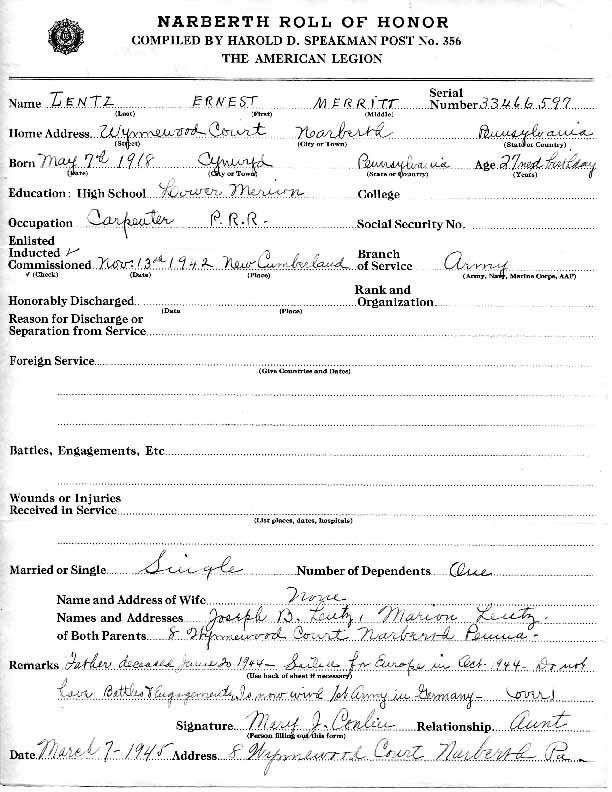 NARBERTH ROLL OF HONOR
COMPILED BY HAROLD D. SPEAKMAN POST No. 356
THE AMERICAN LEGION
Name LENTZ ERNEST MERRITT Serial Number 33466597
(Last) (First) (Middle)
Home Address Wynnewood Court Narberth Pennsylvania
(Street) (City or Town) (State or Country)
Born May 7th 1918 Cynwyd Pennsylvania Age 27 next birthday
(Date) (City or Town) (State or Country) (Years)
Education: High School Lower Merion College
Occupation Carpenter P.R.R. Social Security No.
Enlisted
Inducted ✓ Branch
Commissioned Nov. 13th 1942 New Cumberland of Service Army
✓ (Check) (Date) (Place) (Army, Navy, Marine Corps, AAF)
Rank and
Honorably Discharged Organization
(Date (Place)
Reason for Discharge or
Separation from Service
Foreign Service
(Give Countries and Dates)
Battles, Engagements, Etc
Wounds or Injuries
Received in Service
(List places, dates, hospitals)
Married or Single Single Number of Dependents One
Name and Address of Wife None
Names and Addresses Joseph B. Lentz, Marion Lentz.
of Both Parents 8 Wynnewood Court Narberth Penna.
Remarks Father deceased June 20 1944 - Sailed for Europe in Oct. 1944 - Do not
(Use back of sheet if necessary)
have Battles & Engagements, Is now with 1st Army in Germany - (over)
Signature Mary J. Conlin Relationship Aunt
(Person filling out this form)
Date March 7 - 1945 Address 8 Wynnewood Court Narberth Pa.